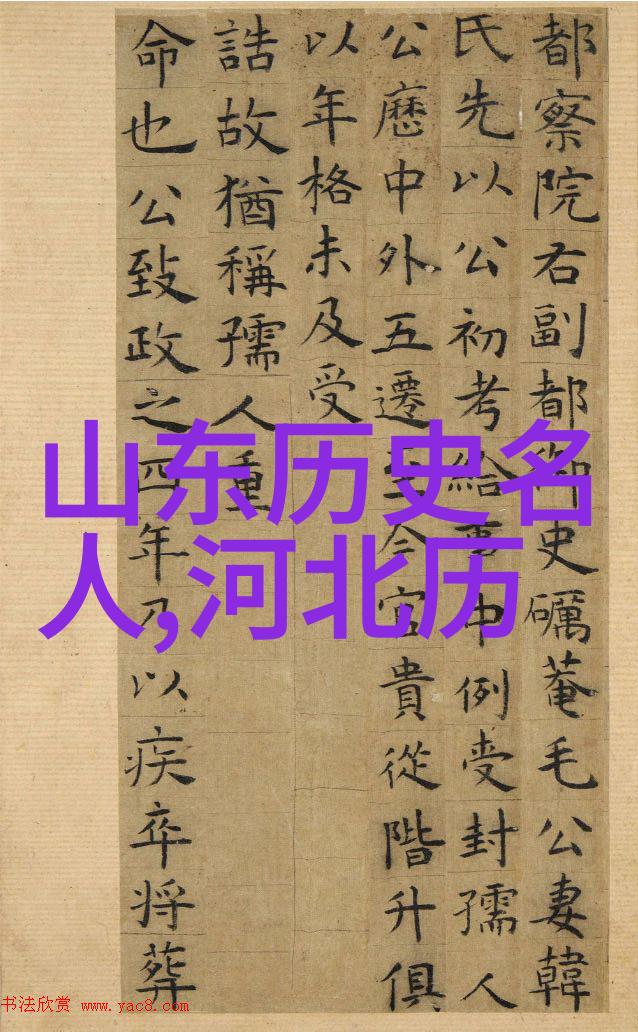 都察院右副都御史礪菴毛公妻韓
氏先以公初考給事中例受封孺人
公歷中外五遷至今官貴從階升俱
以年格未及受
誥故猶稱孺人重
命也公致政之四年乃以疾卒将葬
山东历史名
人,河北历
书法欣赏 www.yac8.com